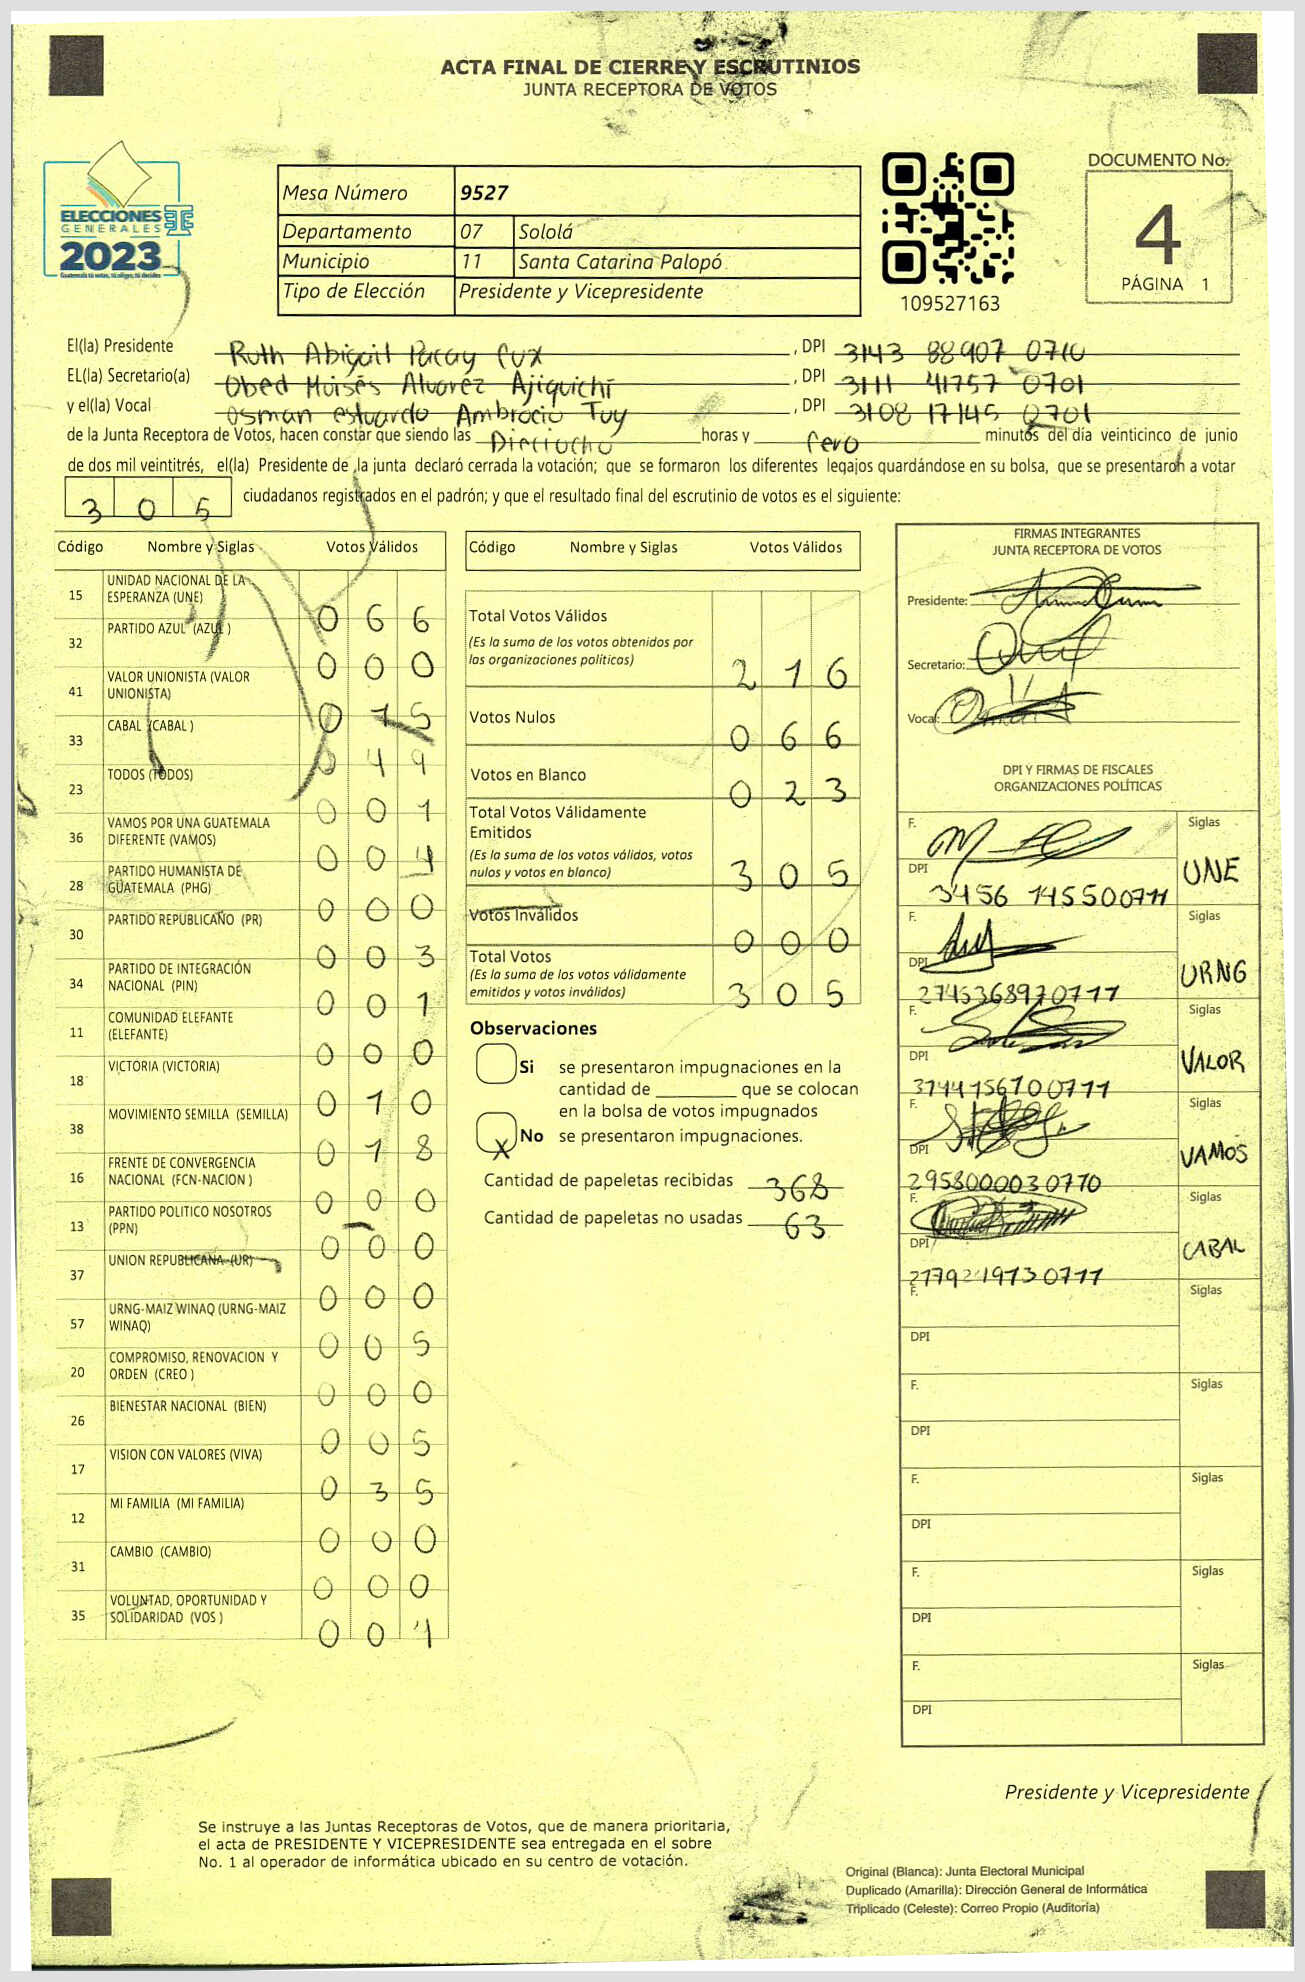 ACTA FINAL DE CIERRE Y ESCRUTINIOS
JUNTA RECEPTORA DE VOTOS
ELECCIONES
GENERALES
2023
Guatemala tú votas, tú eliges, tú decides
Mesa Número 9527
Departamento 07 Sololá
Municipio 11 Santa Catarina Palopó
Tipo de Elección Presidente y Vicepresidente
109527163
DOCUMENTO No.
4
PÁGINA 1
El(la) Presidente Ruth Abigail Pacay Cux, DPI 3143 88907 0710
EL(la) Secretario(a) Obed Moisés Alvarez Ajiquichí, DPI 3111 41757 0701
y el(la) Vocal Osman estuardo Ambrocio Tuy, DPI 3108 17145 0701
de la Junta Receptora de Votos, hacen constar que siendo las Dieciocho horas y Cero minutos del día veinticinco de junio
de dos mil veintitrés, el(la) Presidente de la junta declaró cerrada la votación; que se formaron los diferentes legajos guardándose en su bolsa, que se presentaron a votar
305 ciudadanos registrados en el padrón; y que el resultado final del escrutinio de votos es el siguiente:
Código Nombre y Siglas Votos Válidos
15 UNIDAD NACIONAL DE LA ESPERANZA (UNE) 066
32 PARTIDO AZUL (AZUL ) 000
41 VALOR UNIONISTA (VALOR UNIONISTA) 015
33 CABAL (CABAL ) 049
23 TODOS (TODOS) 001
36 VAMOS POR UNA GUATEMALA DIFERENTE (VAMOS) 004
28 PARTIDO HUMANISTA DE GUATEMALA (PHG) 000
30 PARTIDO REPUBLICANO (PR) 003
34 PARTIDO DE INTEGRACIÓN NACIONAL (PIN) 001
11 COMUNIDAD ELEFANTE (ELEFANTE) 000
18 VICTORIA (VICTORIA) 010
38 MOVIMIENTO SEMILLA (SEMILLA) 018
16 FRENTE DE CONVERGENCIA NACIONAL (FCN-NACION ) 000
13 PARTIDO POLITICO NOSOTROS (PPN) 000
37 UNION REPUBLICANA (UR) 000
57 URNG-MAIZ WINAQ (URNG-MAIZ WINAQ) 005
20 COMPROMISO, RENOVACION Y ORDEN (CREO ) 000
26 BIENESTAR NACIONAL (BIEN) 005
17 VISION CON VALORES (VIVA) 035
12 MI FAMILIA (MI FAMILIA) 000
31 CAMBIO (CAMBIO) 000
35 VOLUNTAD, OPORTUNIDAD Y SOLIDARIDAD (VOS ) 004
Código Nombre y Siglas Votos Válidos
Total Votos Válidos
(Es la suma de los votos obtenidos por
las organizaciones políticas) 216
Votos Nulos 066
Votos en Blanco 023
Total Votos Válidamente
Emitidos
(Es la suma de los votos válidos, votos
nulos y votos en blanco) 305
Votos Inválidos 000
Total Votos
(Es la suma de los votos válidamente
emitidos y votos inválidos) 305
Observaciones
Si se presentaron impugnaciones en la
cantidad de ________ que se colocan
en la bolsa de votos impugnados
X No se presentaron impugnaciones.
Cantidad de papeletas recibidas 368
Cantidad de papeletas no usadas 63
FIRMAS INTEGRANTES
JUNTA RECEPTORA DE VOTOS
Presidente:
Secretario:
Vocal:
DPI Y FIRMAS DE FISCALES
ORGANIZACIONES POLÍTICAS
F. Siglas
DPI 3456 14550 0711 UNE
F. Siglas
DPI 2745368970711 URNG
F. Siglas
DPI 3744156700711 VALOR
F. Siglas
DPI 2958000030770 VAMOS
F. Siglas
DPI 2779219730711 CABAL
F. Siglas
DPI
F. Siglas
DPI
F. Siglas
DPI
F. Siglas
DPI
F. Siglas
DPI
Presidente y Vicepresidente
Se instruye a las Juntas Receptoras de Votos, que de manera prioritaria,
el acta de PRESIDENTE Y VICEPRESIDENTE sea entregada en el sobre
No. 1 al operador de informática ubicado en su centro de votación.
Original (Blanca): Junta Electoral Municipal
Duplicado (Amarilla): Dirección General de Informática
Triplicado (Celeste): Correo Propio (Auditoría)